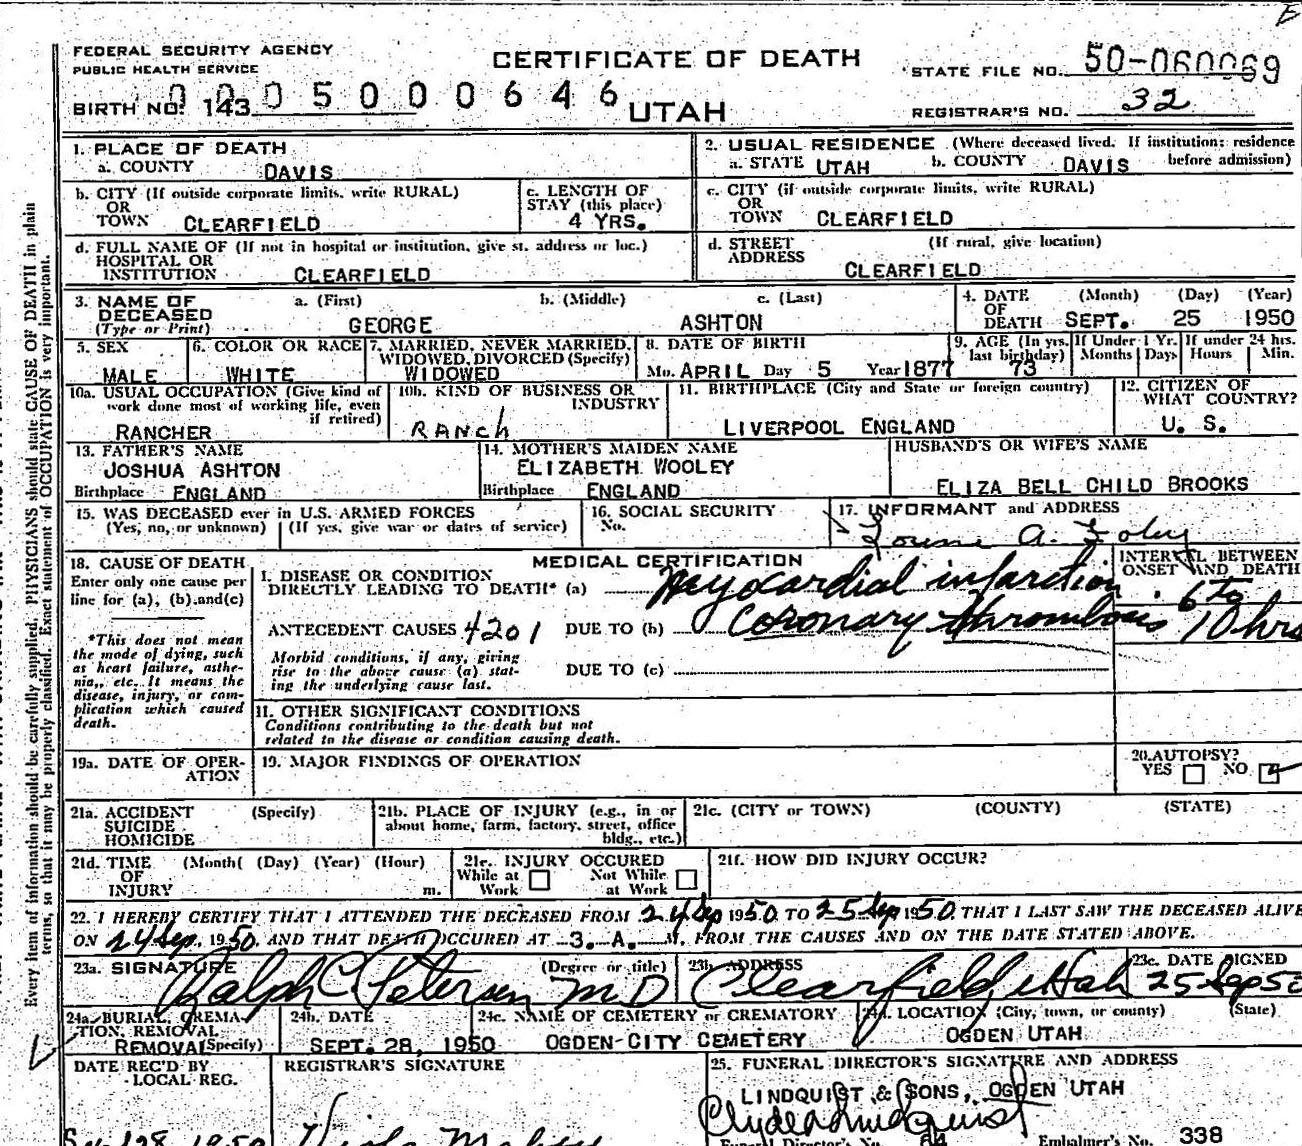 FEDERAL SECURITY AGENCY
PUBLIC HEALTH SERVICE
CERTIFICATE OF DEATH
STATE FILE NO. 50-060069
BIRTH NO. 143 0005000646
UTAH
REGISTRAR'S NO. 32
1. PLACE OF DEATH
a. COUNTY DAVIS
2. USUAL RESIDENCE (Where deceased lived. If institution: residence before admission)
a. STATE UTAH b. COUNTY DAVIS
b. CITY (If outside corporate limits, write RURAL)
OR
TOWN CLEARFIELD
c. LENGTH OF
STAY (this place)
4 YRS.
c. CITY (if outside corporate limits, write RURAL)
OR
TOWN CLEARFIELD
d. FULL NAME OF (If not in hospital or institution, give st. address or loc.)
HOSPITAL OR
INSTITUTION CLEARFIELD
d. STREET (If rural, give location)
ADDRESS
CLEARFIELD
3. NAME OF
DECEASED
(Type or Print)
a. (First) b. (Middle) c. (Last)
GEORGE ASHTON
4. DATE (Month) (Day) (Year)
OF
DEATH SEPT. 25 1950
5. SEX
MALE
6. COLOR OR RACE
WHITE
7. MARRIED, NEVER MARRIED,
WIDOWED, DIVORCED (Specify)
WIDOWED
8. DATE OF BIRTH
Mo. APRIL Day 5 Year 1877
9. AGE (In yrs.
last birthday)
73
If Under 1 Yr.
Months Days
If under 24 hrs.
Hours Min.
10a. USUAL OCCUPATION (Give kind of
work done most of working life, even
if retired)
RANCHER
10b. KIND OF BUSINESS OR
INDUSTRY
RANCh
11. BIRTHPLACE (City and State or foreign country)
LIVERPOOL ENGLAND
12. CITIZEN OF
WHAT COUNTRY?
U. S.
13. FATHER'S NAME
JOSHUA ASHTON
Birthplace ENGLAND
14. MOTHER'S MAIDEN NAME
ELIZABETH WOOLEY
Birthplace ENGLAND
HUSBAND'S OR WIFE'S NAME
ELIZA BELL CHILD BROOKS
15. WAS DECEASED ever in U.S. ARMED FORCES
(Yes, no, or unknown) (If yes, give war or dates of service)
16. SOCIAL SECURITY
No.
17. INFORMANT and ADDRESS
A.
18. CAUSE OF DEATH
Enter only one cause per
line for (a), (b) and (c)
*This does not mean
the mode of dying, such
as heart failure, asthe-
nia, etc. It means the
disease, injury, or com-
plication which caused
death.
MEDICAL CERTIFICATION
I. DISEASE OR CONDITION
DIRECTLY LEADING TO DEATH* (a) Myocardial infarction
ANTECEDENT CAUSES 4201 DUE TO (b) Coronary Thrombosis
Morbid conditions, if any, giving
rise to the above cause (a) stat-
ing the underlying cause last.
DUE TO (c)
INTERVAL BETWEEN
ONSET AND DEATH
6 to
10 hrs
II. OTHER SIGNIFICANT CONDITIONS
Conditions contributing to the death but not
related to the disease or condition causing death.
19a. DATE OF OPER-
ATION
19. MAJOR FINDINGS OF OPERATION
20. AUTOPSY?
YES NO
21a. ACCIDENT (Specify)
SUICIDE
HOMICIDE
21b. PLACE OF INJURY (e.g., in or
about home, farm, factory, street, office
bldg., etc.)
21c. (CITY or TOWN) (COUNTY) (STATE)
21d. TIME (Month( (Day) (Year) (Hour)
OF
INJURY m.
21e. INJURY OCCURED
While at Not While
Work at Work
21f. HOW DID INJURY OCCUR?
22. I HEREBY CERTIFY THAT I ATTENDED THE DECEASED FROM 24 Sep 1950 TO 25 Sep 1950 THAT I LAST SAW THE DECEASED ALIVE
ON 24 Sep, 1950. AND THAT DEATH OCCURED AT 3. A. M, FROM THE CAUSES AND ON THE DATE STATED ABOVE.
23a. SIGNATURE (Degree or title)
Ralph C Petersen M D
23b. ADDRESS
Clearfield Utah
23c. DATE SIGNED
25 Sep 50
24a. BURIAL, CREMA-
TION, REMOVAL
(Specify) REMOVAL
24b. DATE
SEPT. 28, 1950
24c. NAME OF CEMETERY or CREMATORY
OGDEN CITY CEMETERY
24d. LOCATION (City, town, or county) (State)
OGDEN UTAH
DATE REC'D BY
LOCAL REG.
REGISTRAR'S SIGNATURE
25. FUNERAL DIRECTOR'S SIGNATURE AND ADDRESS
LINDQUIST & SONS, OGDEN UTAH
Funeral Director's No. 84 Embalmer's No. 338
Every item of information should be carefully supplied. PHYSICIANS should state CAUSE OF DEATH in plain
terms, so that it may be properly classified. Exact statement of OCCUPATION is very important.